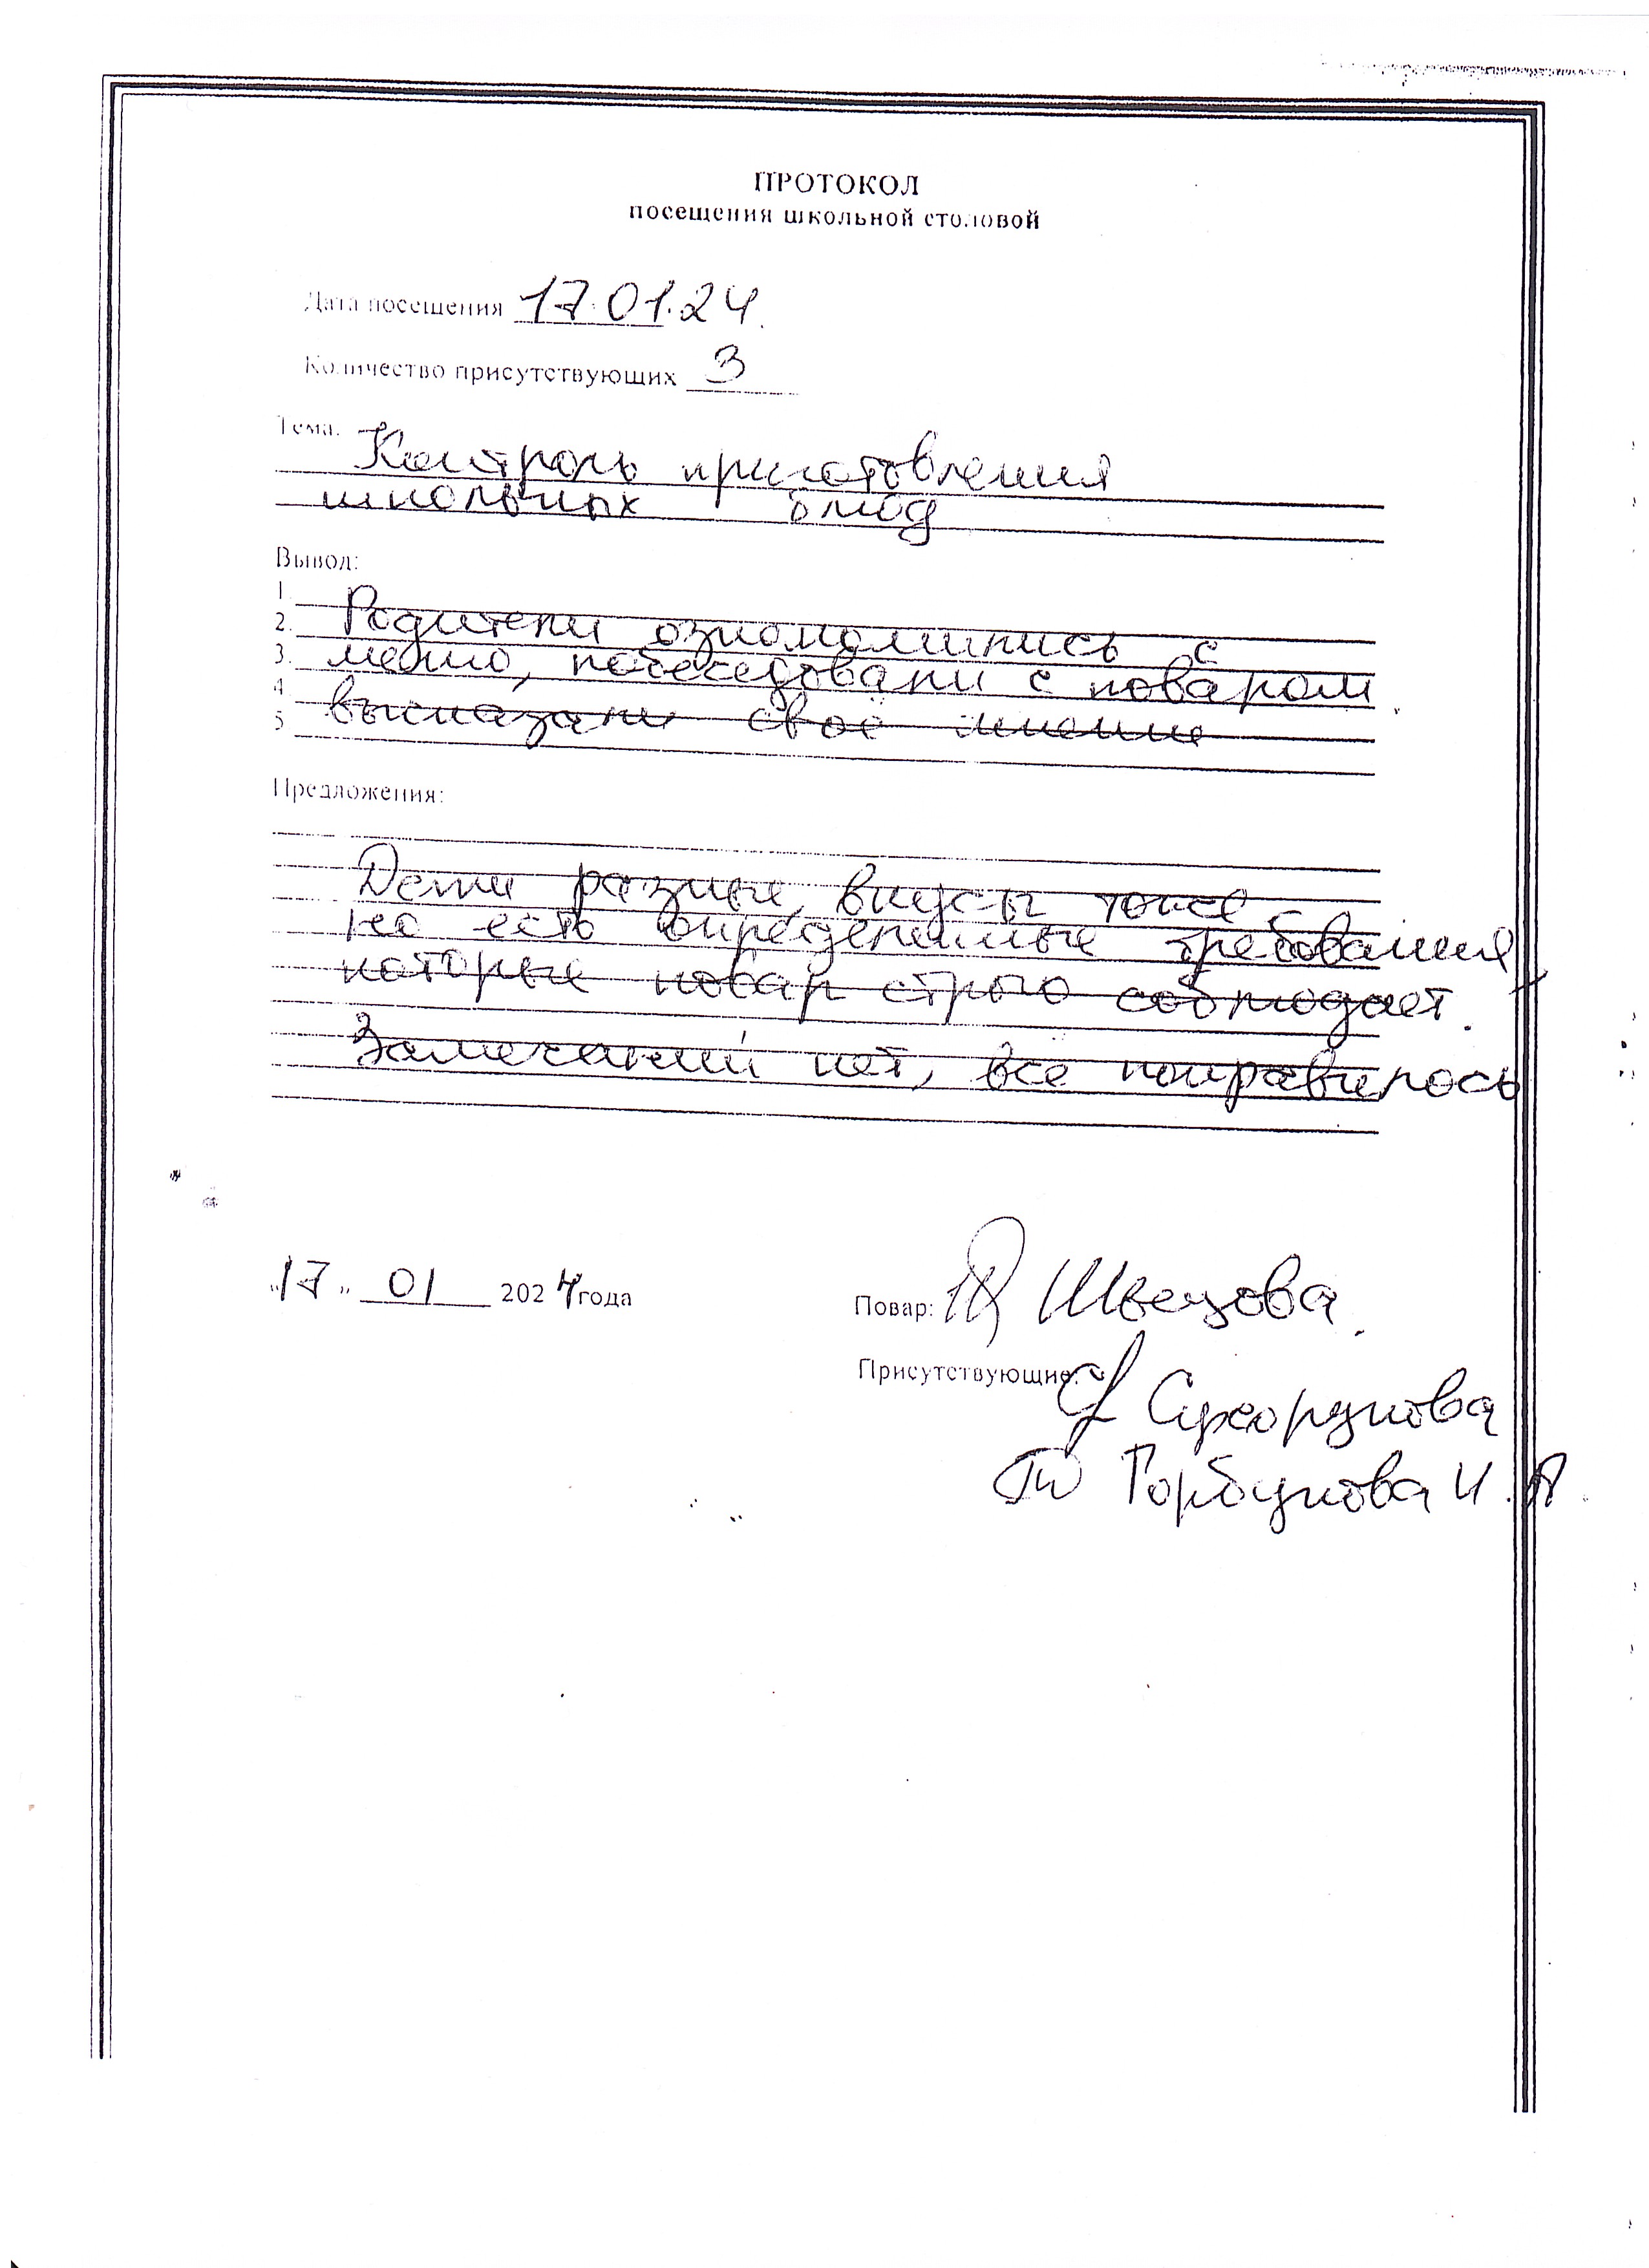 ПРОТОКОЛ
посещения школьной столовой
Дата посещения 17.01.24.
Количество присутствующих 3
Тема:
Контроль приготовления
школьных блюд
Вывод:
1.
2. Родители ознакомились с
3. меню, побеседовали с поваром
4 высказали своё мнение
5
Предложения:
Дети разные, вкусы тоже
но есть определенные требования,
которые повар строго соблюдает.
Замечаний нет, всё понравилось
"17" 01 2024 года
Повар: Швецова.
Присутствующие:
Горбунова И.А.